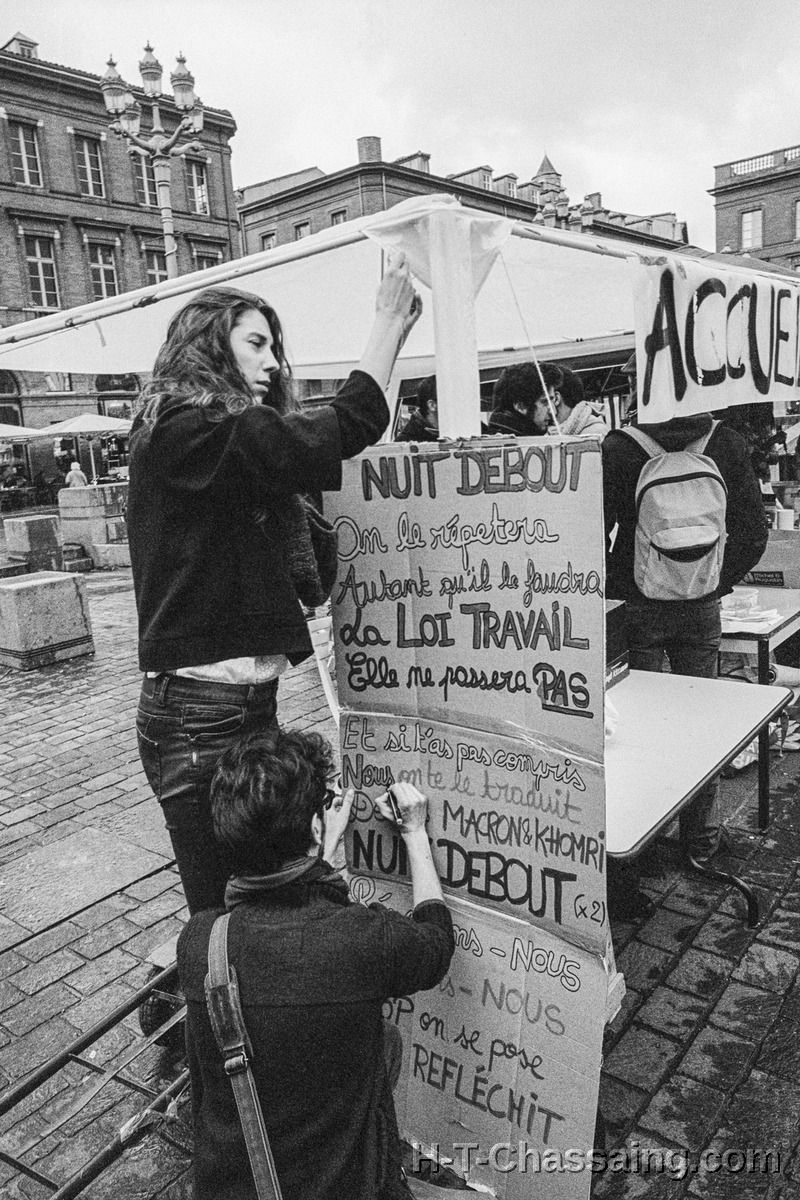 ACCUEI
NUIT DEBOUT
On le répètera
Autant qu'il le faudra
La LOI TRAVAIL
Elle ne passera PAS
Et si t'as pas compris
Nous on te le traduit
MACRON & KHOMRI
NUIT DEBOUT (x2)
- NOUS
- NOUS
on se pose
REFLÉCHIT
H-T-Chassaing.com